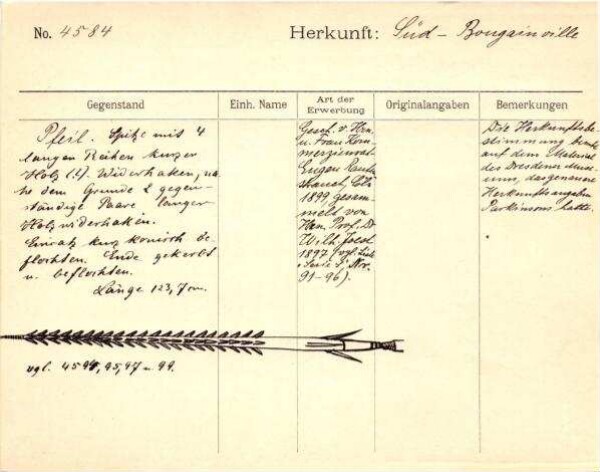 No. 4584
Herkunft: Süd-Bougainville
Gegenstand
Einh. Name
Art der Erwerbung
Originalangaben
Bemerkungen
Pfeil. Spitze mit 4
langen Reihen kurzer
Holz (?) Widerhaken, na-
he dem Grunde 2 gegen-
ständige Paare langer
Holzwiderhaken.
Einsatz kurz konisch be-
flochten. Ende gekerbt
u. beflochten.
Länge 123,7 cm.
Gesch. v. Hrn.
u. Frau Kom-
merzienrat
Eugen Rauten-
strauch, Cöln
1899 gesam-
melt von
Hrn. Prof. Dr
Wilh. Joest
1897 (vgl.
Serie S, Nr.
91-96).
Die Herkunftsbe-
stimmung beruht
auf dem Material
des Dresdener Mus-
eums, das genauere
Herkunftsangaben
Parkinsons hatte.
vgl. 4594, 95, 97 u. 99.